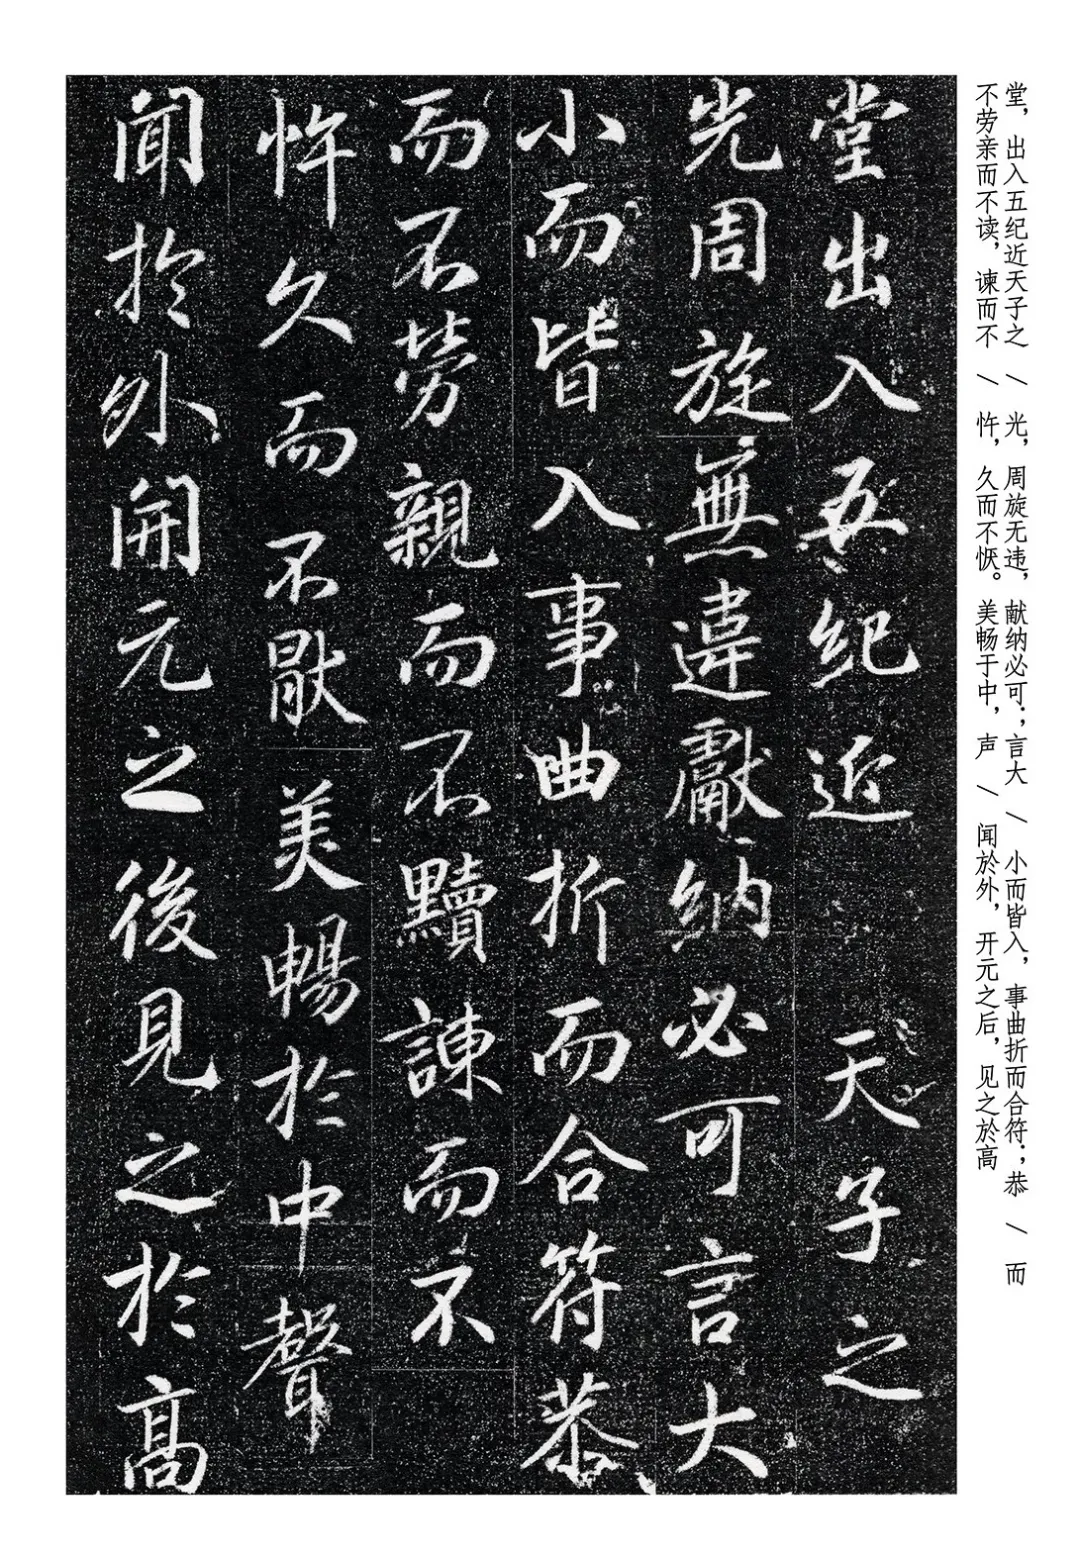 堂，出入五纪近天子之 / 光，周旋无违，献纳必可；言大 / 小而皆入，事曲折而合符；恭 / 而
不劳亲而不读，谏而不 / 忤，久而不恹。美畅于中，声 / 闻於外，开元之后，见之於高
堂出入五紀近天子之
光周旋無違獻納必可言大
小而皆入事曲折而合符恭
而不勞親而不黷諫而不
忤久而不猒美暢於中聲
聞於外開元之後見之於高